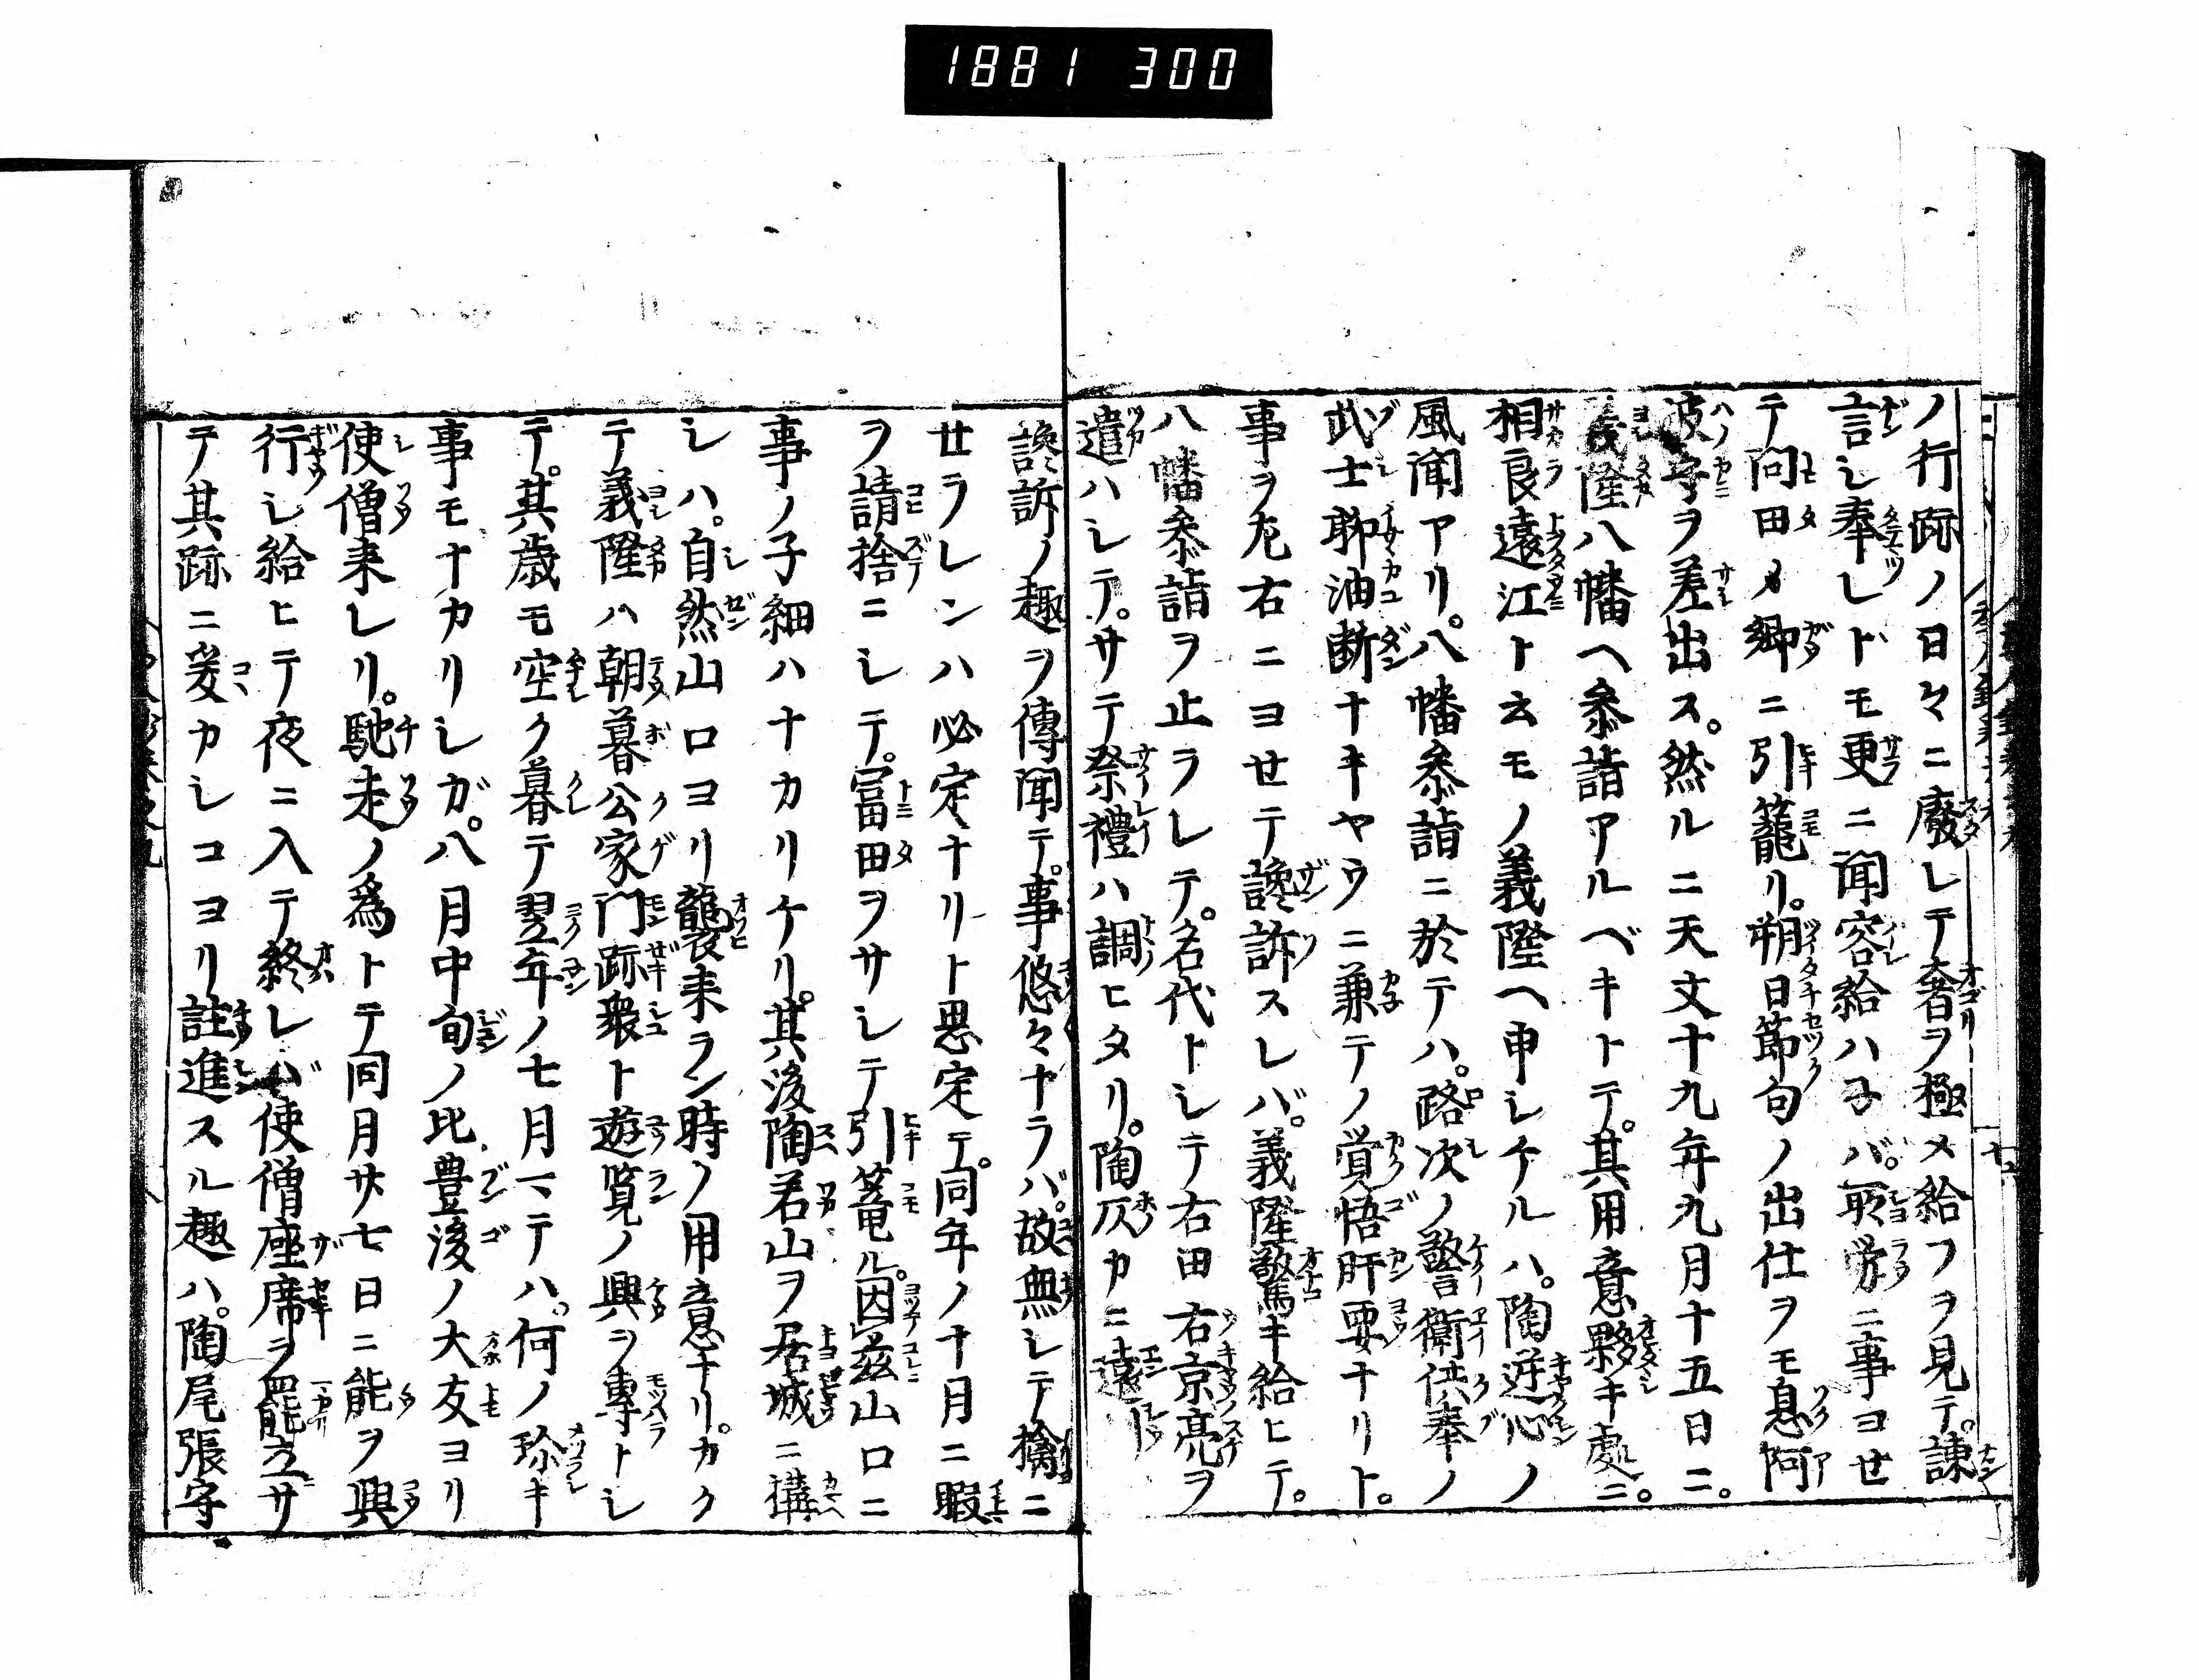 1881 300
ノ行跡ノ日々ニ廢レテ奢ヲ極メ給フヲ見テ。諫
言シ奉レドモ更ニ聞容給ハネバ。所労ニ事ヨセ
テ問田メ郷ニ引籠リ。朔日節句ノ出仕ヲモ息阿
波守ヲ差出ス。然ルニ天文十九年九月十五日ニ。
義隆八幡ヘ参詣アルベキトテ。其用意夥キ處ニ。
相良遠江ト云モノ義隆ヘ申シケルハ。陶逆心ノ
風聞アリ。八幡参詣ニ於テハ。路次ノ警衛供奉ノ
武士聊油断ナキヤウニ兼テノ覚悟肝要ナリト。
事ヲ左右ニヨセテ讒訴スレバ。義隆驚キ給ヒテ。
八幡参詣ヲ止ラレテ。名代トシテ右田右京亮ヲ
遣ハシテ。サテ祭禮ハ調ヒタリ。陶仄カニ遠
讒訴ノ趣ヲ傳聞テ。事悠々ナラバ。故無シテ擒ニ
セラレンハ必定ナリト思定テ。同年ノ十月ニ暇
ヲ請捨ニシテ。冨田ヲサシテ引篭ル。因茲山口ニ
事ノ子細ハナカリケリ。其後陶若山ヲ居城ニ構
シハ。自然山口ヨリ襲来ラン時ノ用意ナリ。カク
テ義隆ハ朝暮公家門跡衆ト遊覧ノ興ヲ專トシ
テ。其歳モ空ク暮テ翌年ノ七月マテハ。何ノ珍キ
事モナカリシガ。八月中旬ノ比豊後ノ大友ヨリ
使僧来レリ。馳走ノ為トテ同月廿七日ニ能ヲ興
行シ給ヒテ夜ニ入テ終レバ使僧座席ヲ罷立サ
テ其跡ニ爰カシコヨリ註進スル趣ハ。陶尾張守